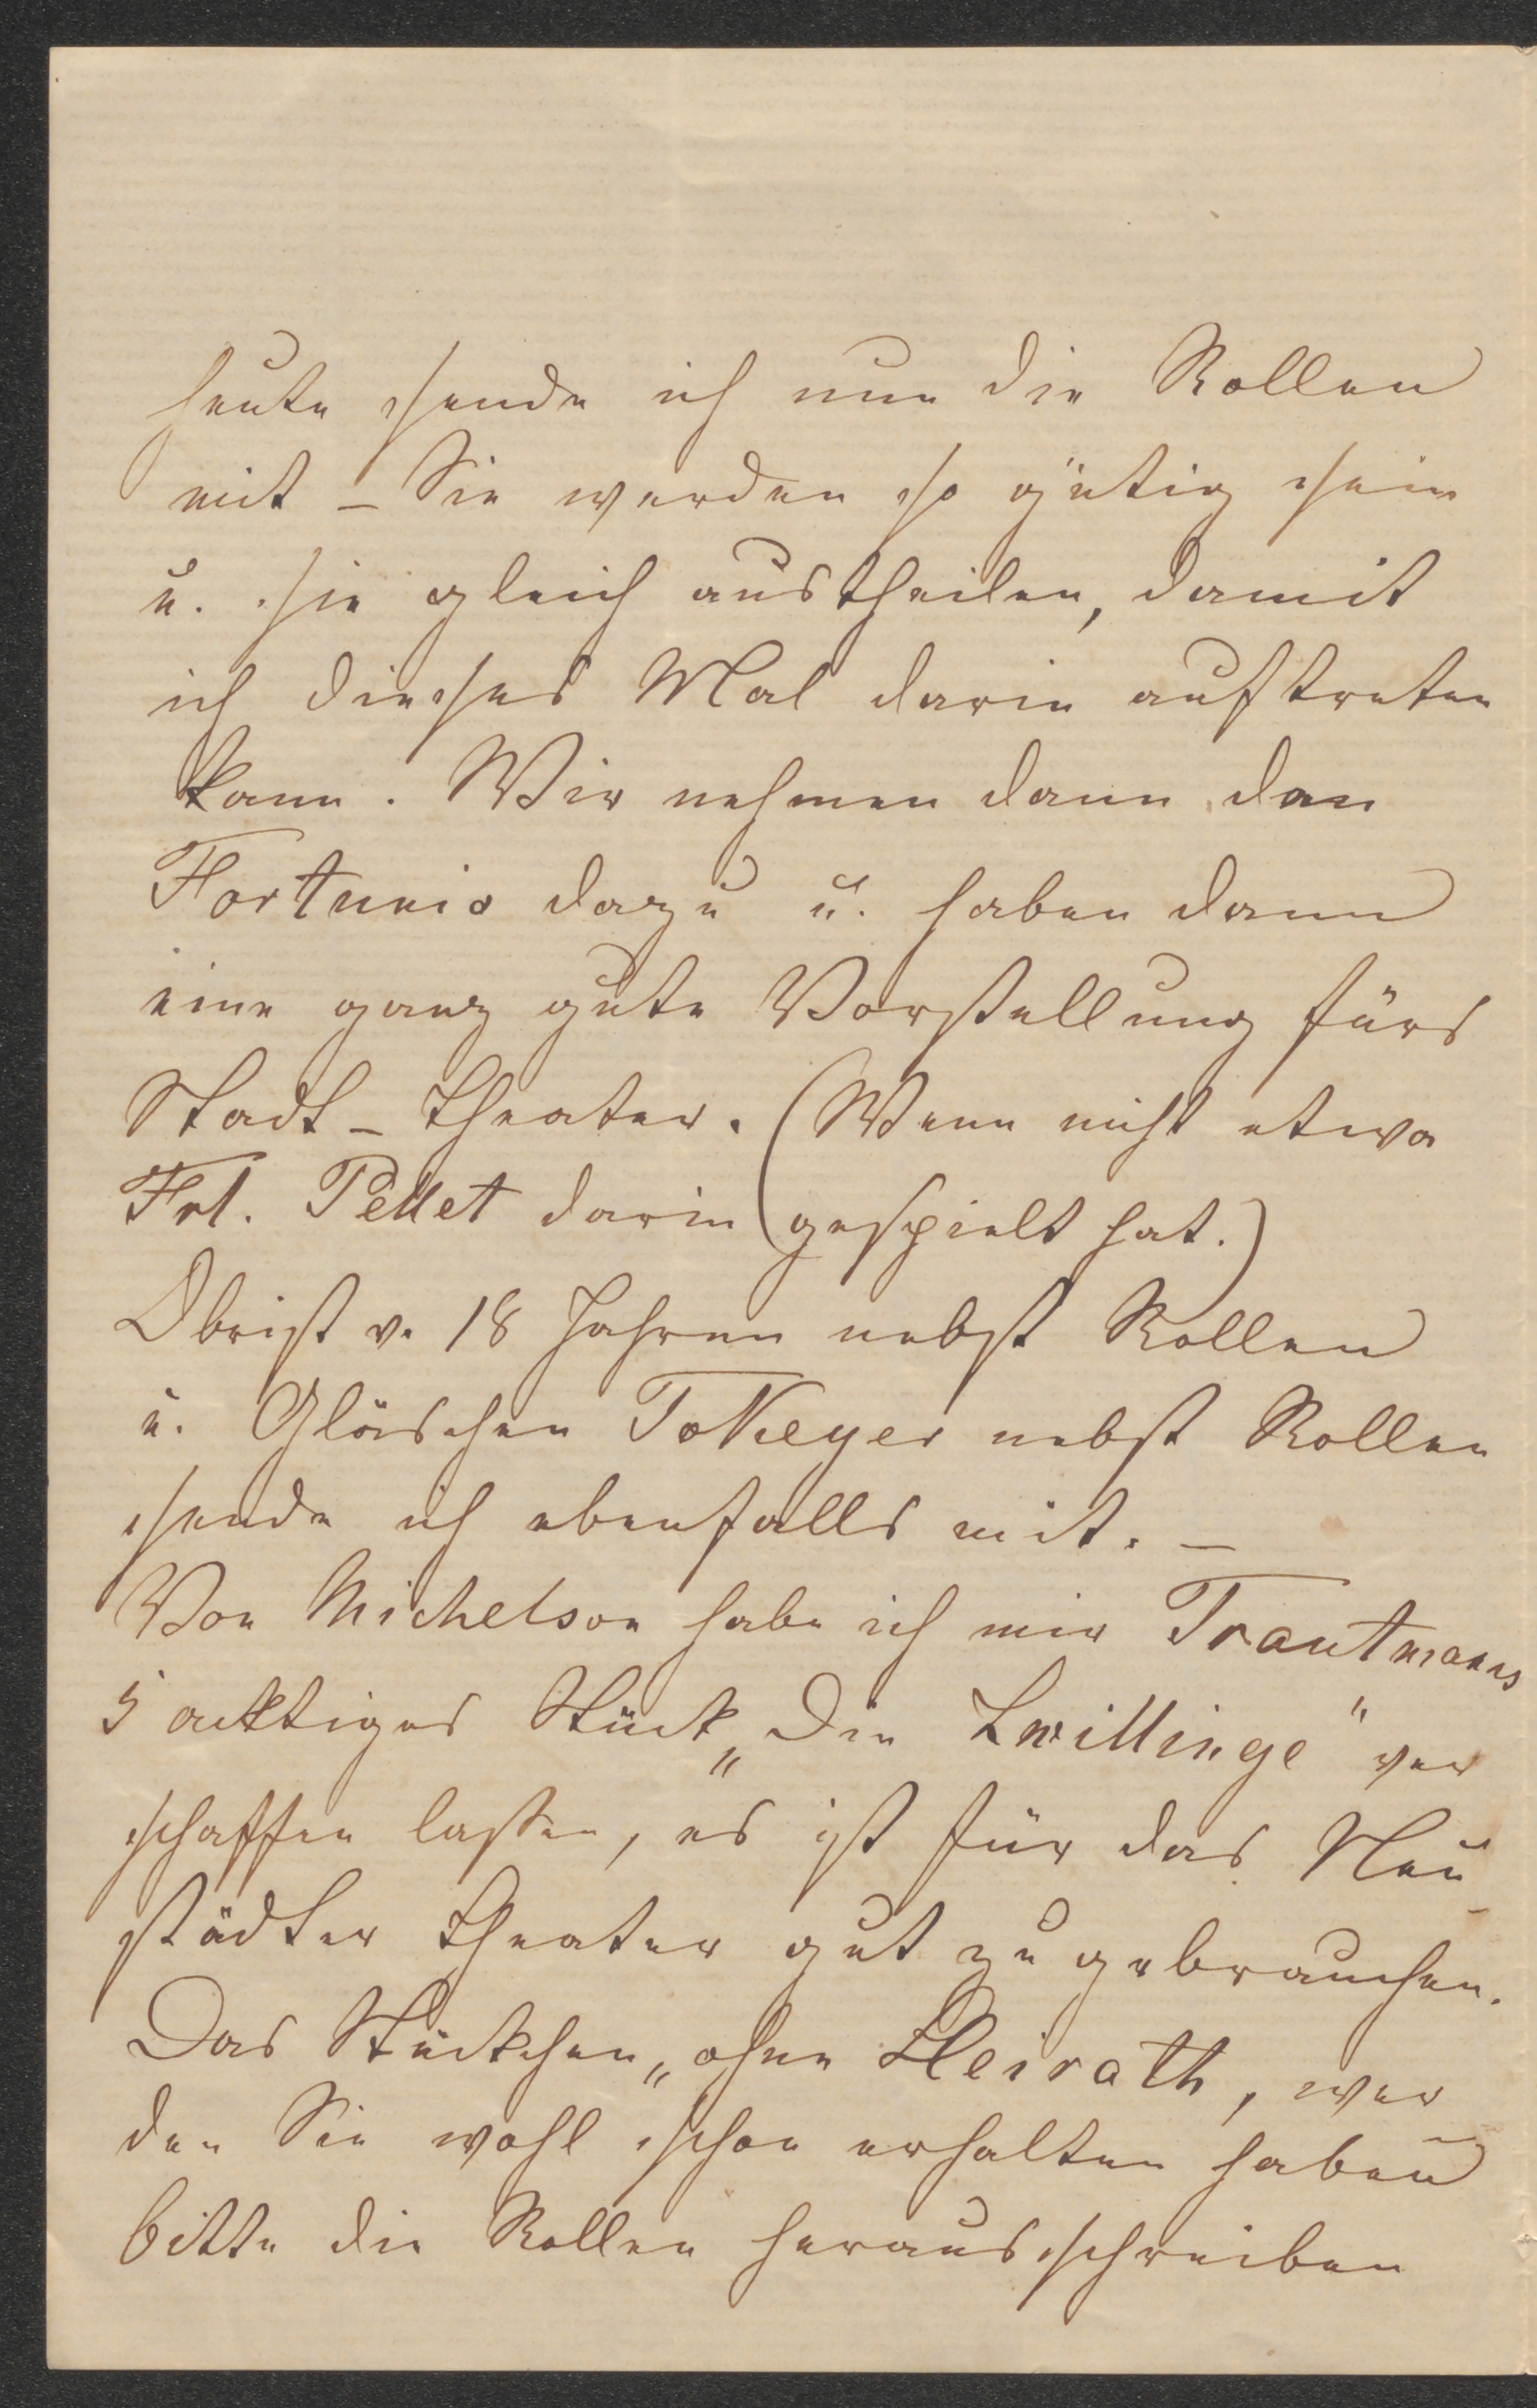 heute sende ich nun die Rollen
mit – Sie werden so gütig sein
u. sie gleich austheilen, damit
ich dieses Mal darin auftreten
kann. Wir nehmen dann den
Fortunio dazu u. haben dann
eine ganz gute Vorstellung fürs
Stadt-Theater. (Wenn nicht etwa
Frl. Pellet darin gespielt hat.)
Obrist v. 18 Jahren nebst Rollen
u. Gläschen Tokeyer nebst Rollen
sende ich ebenfalls mit. –
Von Michelson habe ich mir Trautmanns
5 acktiges Stück „Die Zwillinge" ver
schaffen lassen, es ist für das Neu
städter Theater gut zu gebrauchen.
Das Stückchen „ohne Heirath, wer
den Sie wohl schon erhalten haben
bitte die Rollen herausschreiben